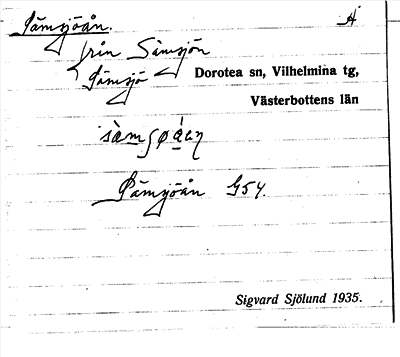 Sämsjöån. A
från Sämsjön
Sämsjö Dorotea sn, Vilhelmina tg,
Västerbottens län
Sämsjöån G54.
Sigvard Sjölund 1935.